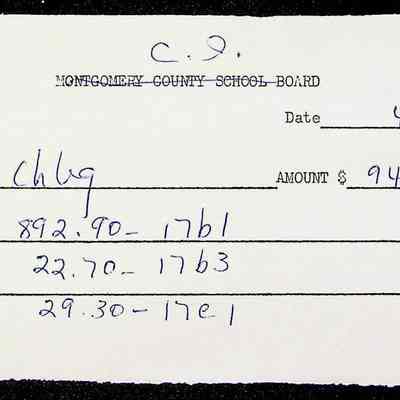 C. I.
MONTGOMERY COUNTY SCHOOL BOARD
Date 4
Chbg AMOUNT $ 94
892.90- 17b1
22.70- 17b3
29.30-17e1